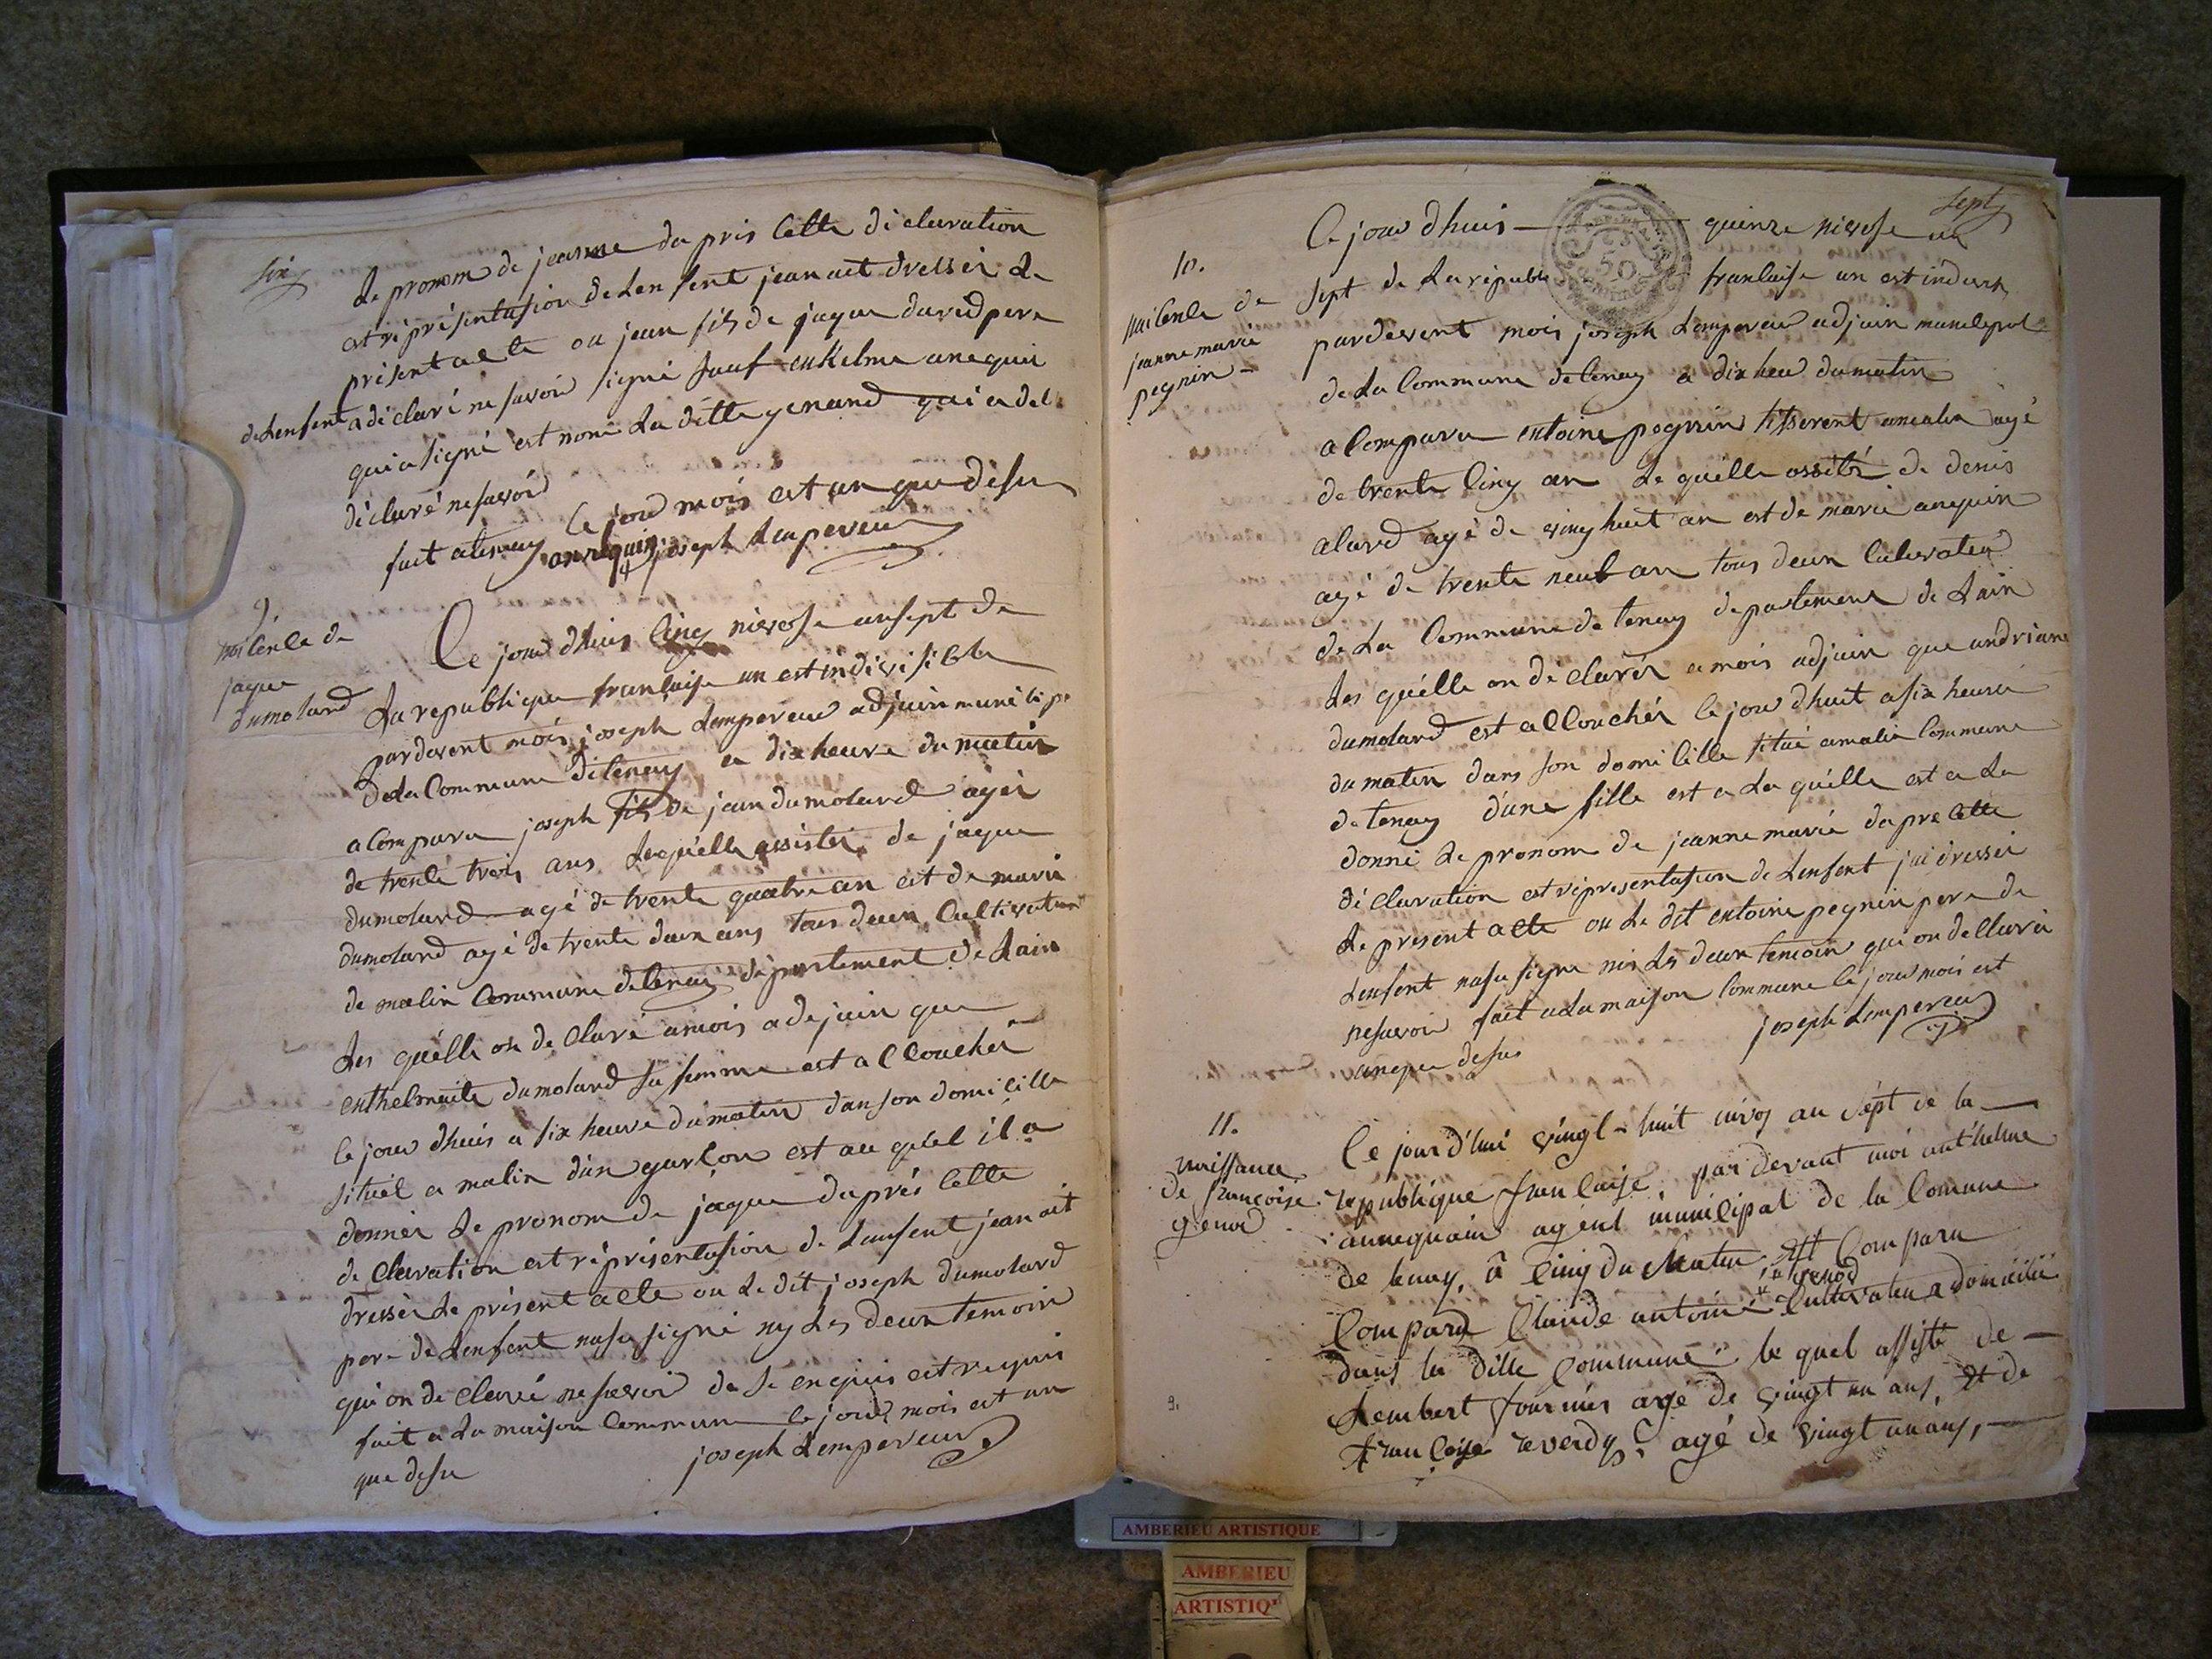 six
Le pronom de jeanne da pris Cette diclaration
est riprésentasion de Lenfent jean ait dressei Le
prisent acte ou jean fils de jaque david pere
de Lenfent a diclaré ne savoir signé sauf enthelme anequin
qui a signé est nom La ditte genand qui a del
diclaré ne savoir
fait a tenay le jour mois est an que desu
anrequin joseph Lempereur
9.
naisence de
jaque
dumolard
Ce jour dhuis Cinq nivose an sept de
La republique française un est indivisible
pardevent mois joseph Lempereur adjuin municipe
de La Commune de tenay a dix heure du matin
a Comparu joseph fils de jean dumolard agéi
de trente trois ans Lequélle assistei de jaque
dumolard agé de trente quatre an est de marie
dumolard agé de trente deux ans tous deux Cultivateur
de malix Commune de tenay département de Lain
Les quélle on de Claré a mois adejuin que
enthelmaite dumolard sa femme est a CCouchéi
le jour dhuis a six heure du matin dan son domicille
situél a malin d'un garçon est au quél il a
donnéi Le pronom de jaque daprés Cette
de Claration est réprésentasion de Lanfent jean ait
dressér Le présent acte ou Le dit joseph dumolard
pere de Lenfent nasu signé ny Les deux temoin
qui on de Claré ne savoir de Se enquis est requis
fait a La maison Commune le jour mois est an
que desu
joseph Lempereur
sept
10.
naisence de
jeanne marie
pegnin
Ce jour dhuis quinze nivose an
sept de La républi française un est indivis
pardevent mois joseph Lempereur adjuin municipal
de La Commune de tenay a dix heu du matin
a Comparu entoine pegnin tisserent amalin agé
de trente Cinq an Le quélle assité de denis
alard agé de ving huit an est de marie anequin
agé de trente neuf an tous deux Cultivateur
de La Commune de tenay departement de Lain
Les quélle on de Claréi a mois adjuin que andriane
dumolard est a CCouchéi le jour dhuit a six heure
du matin dans son domi Cille situé a malin Commune
de tenay d'une fille est a La quélle est a La
donné Le pronom de jeanne marie dapre Cette
di Claration est répresentasion de Lenfent jai dressei
Le present acte ou Le dit entoine pegnin pere de
Lenfent nasu signe nis Les deux temoin qui on de Claré
nesavoir fait a La maison Commune le jour mois est
an que desus
joseph Lempereur
11.
naissance
de françoise
genod
Ce jourd'hui vingt-huit nivos an sépt de la
république françaisse, par devant moi anthelme
annequain agent municipal de la Comune
de tenay, à Cinq du Matin, est Comparu
Comparu Claude antoine genod Cultivateur a domicilié
dans la ditte Commune le quel assisté de
Lembert fournier agé de vingt un ans, et de
françoise reverdy, agé de vingt un ans,
9.
AMBERIEU ARTISTIQUE
AMBERIEU
ARTISTIQ